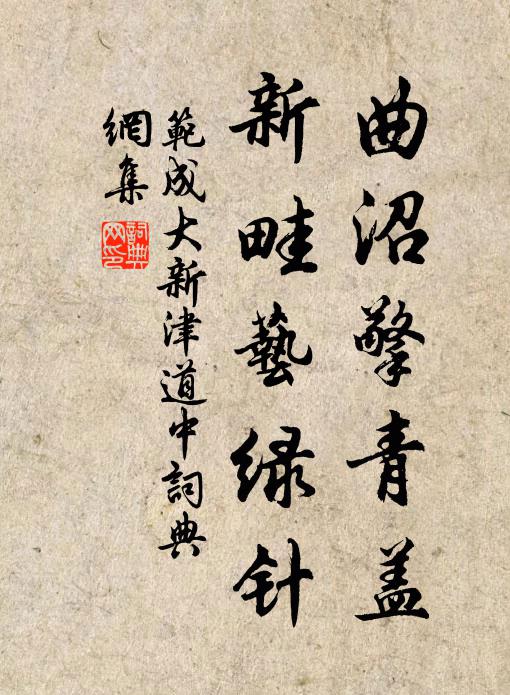 曲沼擎青盖
新畦藝绿针
範成大新津道中詞典
網集
詞典
网印